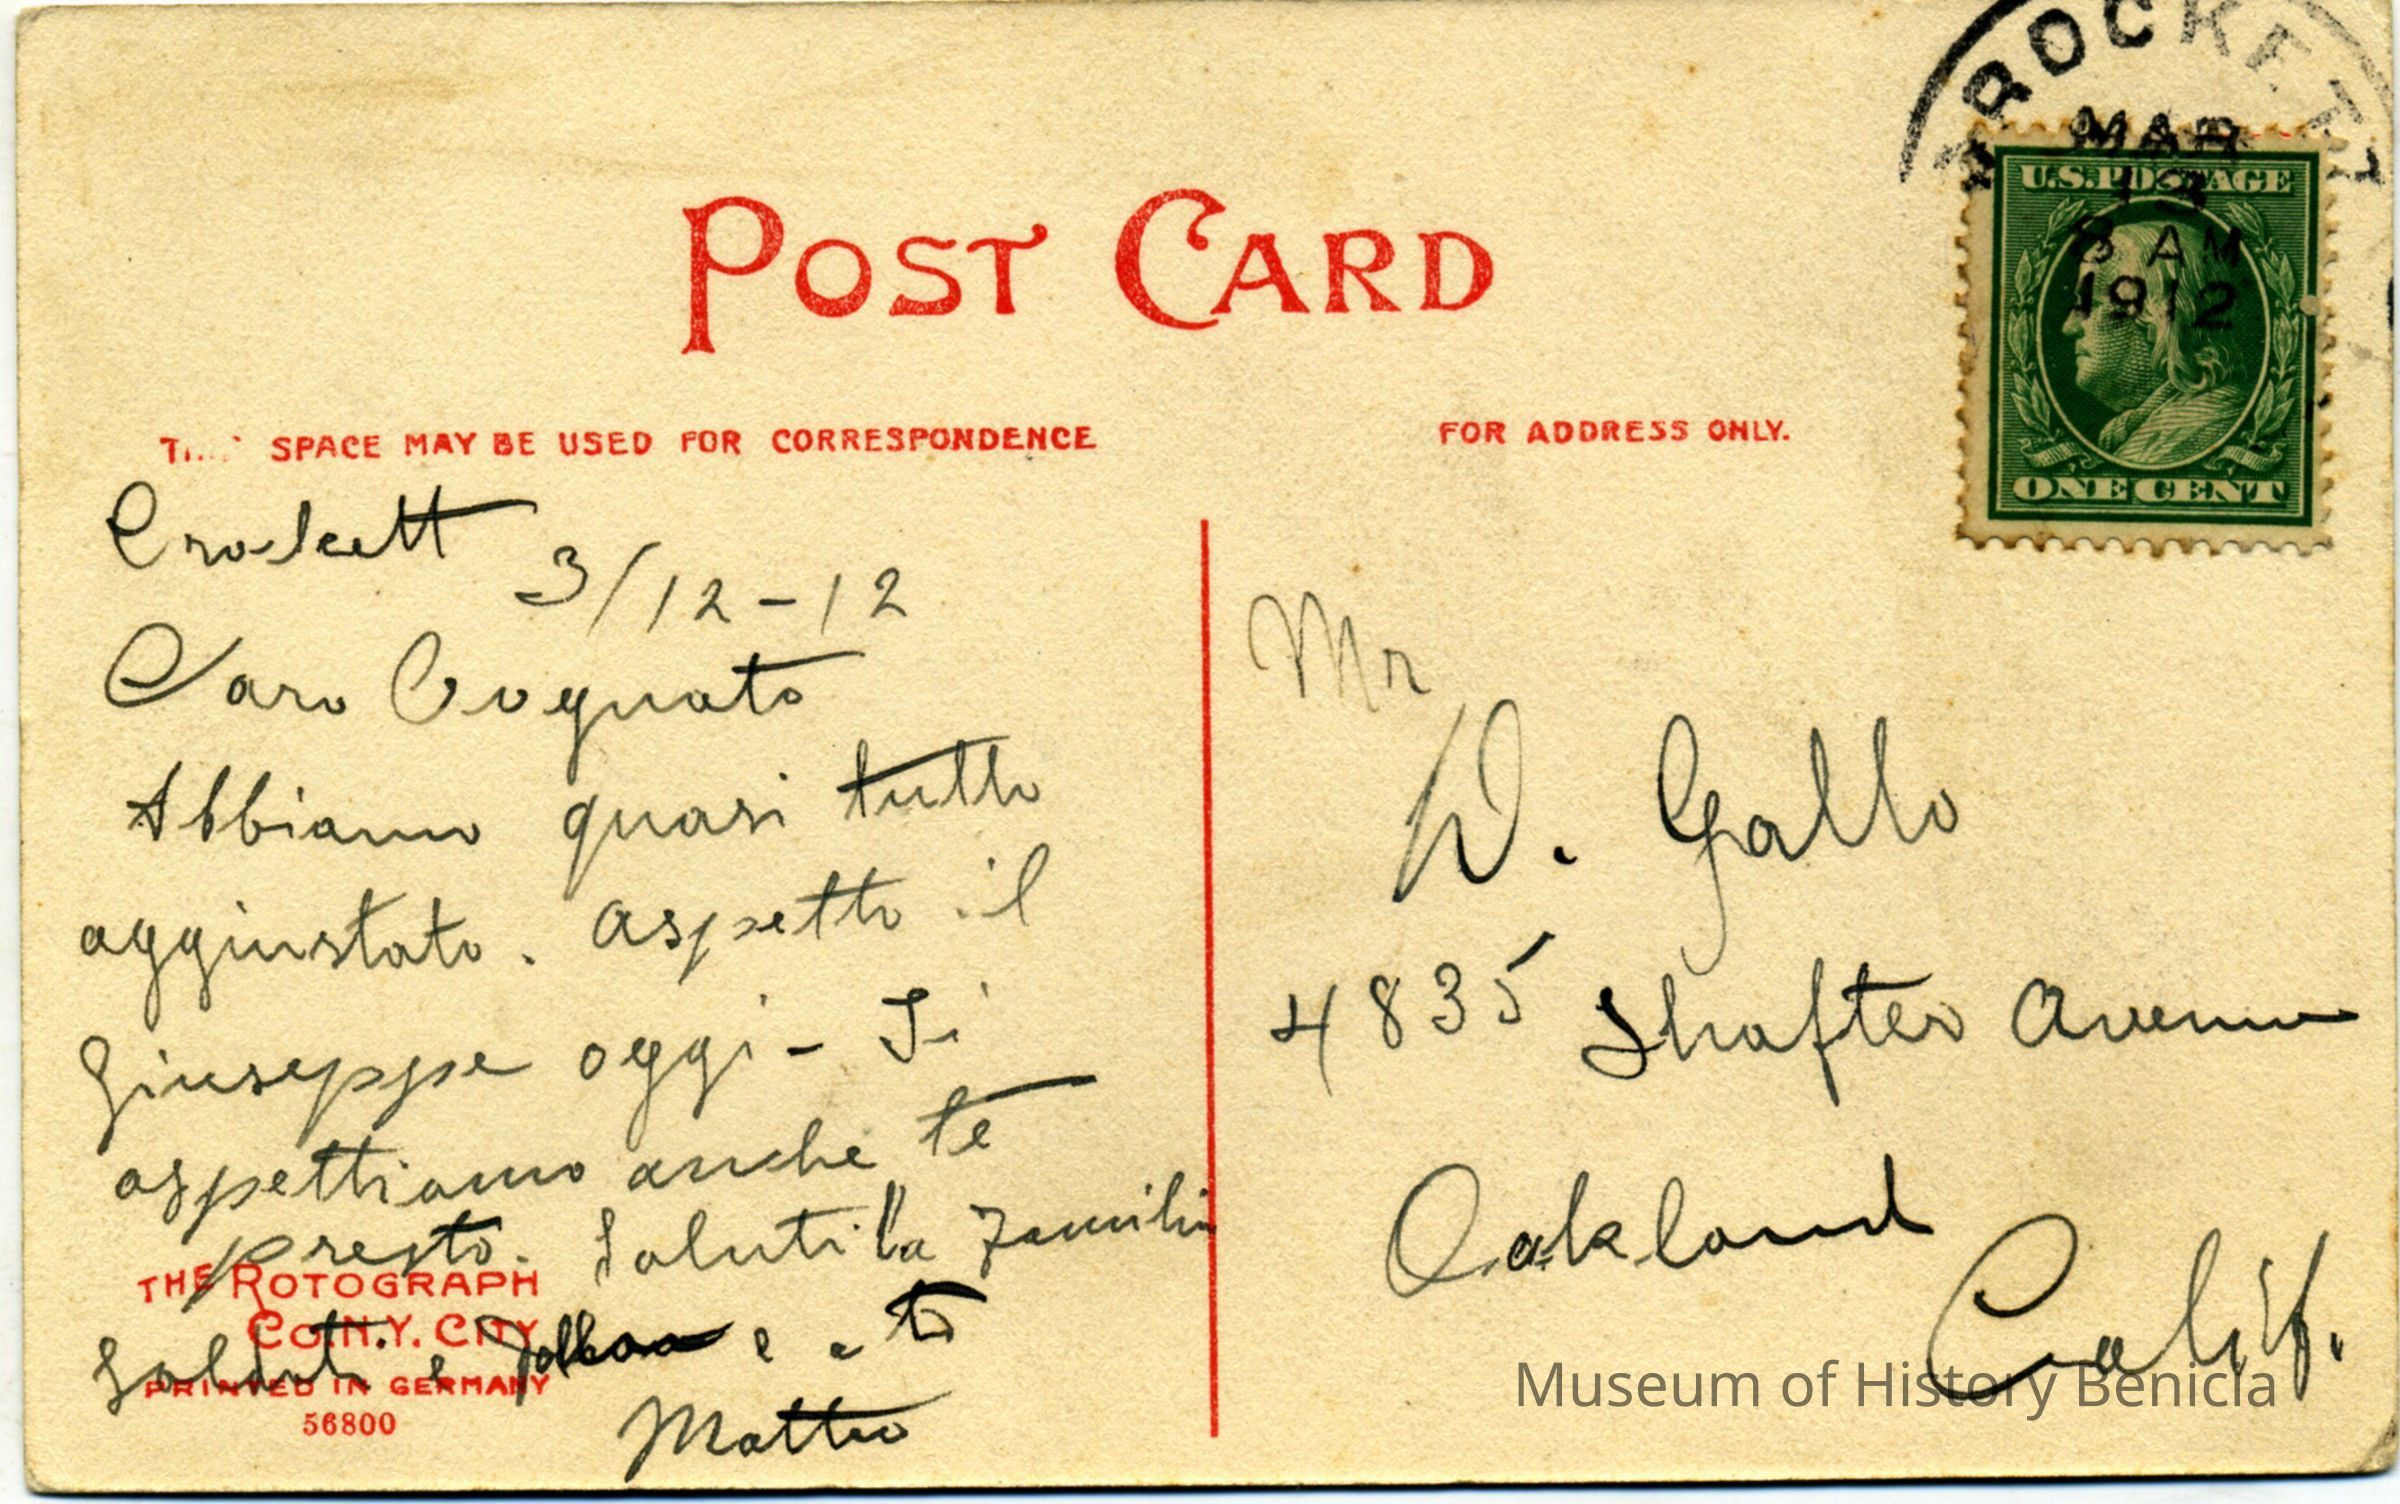 CROCKETT
MAR
13
8 AM
1912
U.S. POSTAGE
ONE CENT
POST CARD
SPACE MAY BE USED FOR CORRESPONDENCE
FOR ADDRESS ONLY.
Crockett
3/12-12
Caro Cognato
Abbiamo quasi tutto
aggiustato. aspetto il
Giuseppe oggi - Ti
aspettiamo anche te
presto. Saluti la familia
e e te
Matteo
Mr
D. Gallo
4835 Shafter Avenue
Oakland
Calif.
THE ROTOGRAPH
CO. N.Y. CITY
PRINTED IN GERMANY
56800
Museum of History Benicia